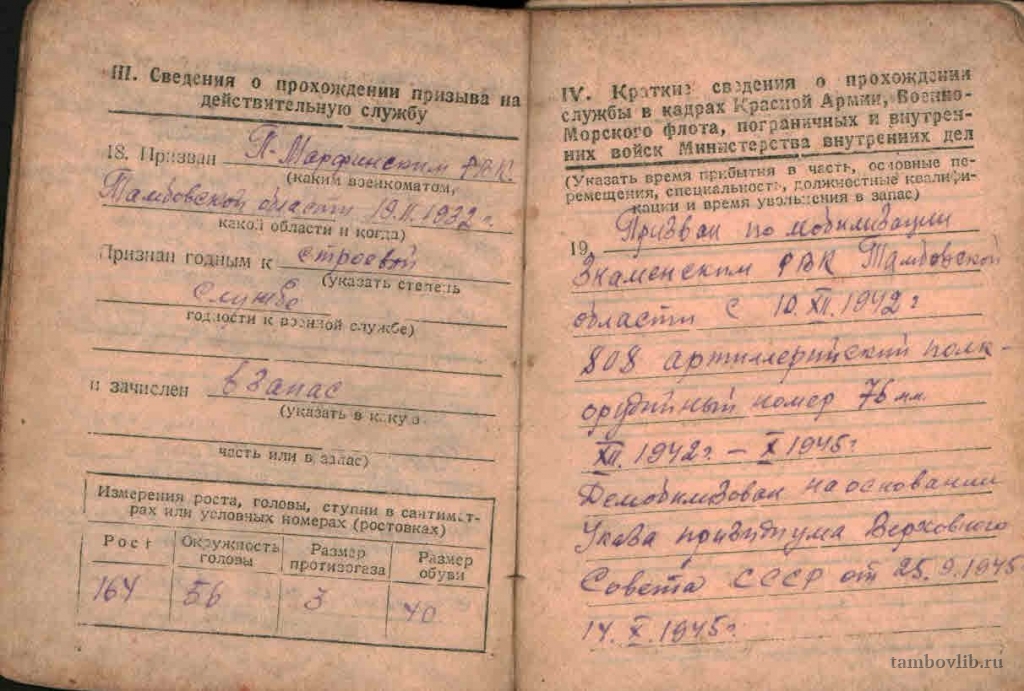 III. Сведения о прохождении призыва на
действительную службу
18. Призван П-Марфинским РВК.
(каким военкоматом,
Тамбовской области 19.II.1932 г.
какой области и когда)
Признан годным к строевой
(указать степень
службе
годности к военной службе)
и зачислен в запас
(указать в какую
часть или в запас)
Измерения роста, головы, ступни в сантимет-
рах или условных номерах (ростовках)
Рост
Окружность
головы
Размер
противогаза
Размер
обуви
164 56 3 40
IV. Краткие сведения о прохождении
службы в кадрах Красной Армии, Военно-
Морского флота, пограничных и внутрен-
них войск Министерства внутренних дел
(Указать время прибытия в часть, основные пе-
ремещения, специальность, должностные квалифи-
кации и время увольнения в запас)
19. Призван по мобилизации
Знаменским РВК Тамбовской
области с 10.XII.1942 г
808 артиллерийский полк -
орудийный номер 76 мм.
XII.1942г. – X 1945г.
Демобилизован на основании
Указа призидиума Верховного
Совета СССР от 25.9.1945
14.X.1945г.
tambovlib.ru